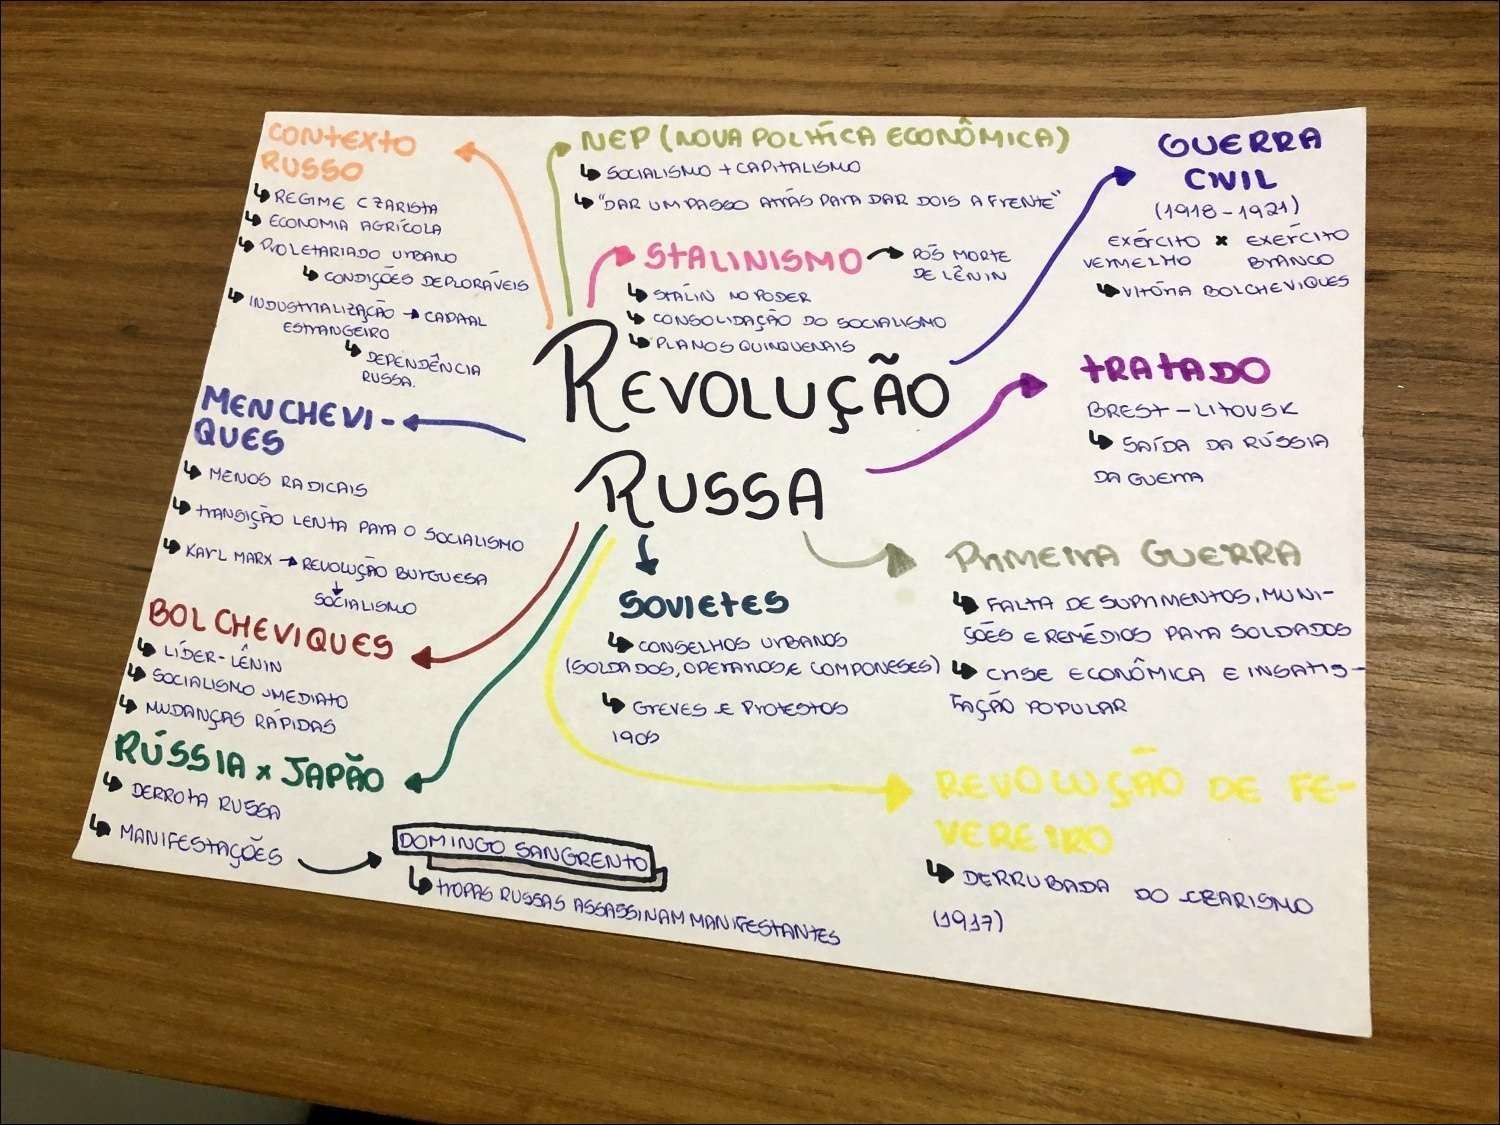 CONTEXTO
RUSSO
REGIME CZARISTA
ECONOMIA AGRÍCOLA
PROLETARIADO URBANO
CONDIÇÕES DEPLORÁVEIS
INDUSTRIALIZAÇÃO → CAPITAL
ESTRANGEIRO
DEPENDÊNCIA
RUSSA.
NEP (NOVA POLÍTICA ECONÔMICA)
SOCIALISMO + CAPITALISMO
"DAR UM PASSO ATRÁS PARA DAR DOIS A FRENTE"
STALINISMO → PÓS MORTE
DE LÊNIN
STÁLIN NO PODER
CONSOLIDAÇÃO DO SOCIALISMO
PLANOS QUINQUENAIS
GUERRA
CIVIL
(1918-1921)
EXÉRCITO × EXÉRCITO
VERMELHO BRANCO
VITÓRIA BOLCHEVIQUES
REVOLUÇÃO
RUSSA
TRATADO
BREST-LITOVSK
SAÍDA DA RÚSSIA
DA GUERRA
MENCHEVI-
QUES
MENOS RADICAIS
TRANSIÇÃO LENTA PARA O SOCIALISMO
KARL MARX → REVOLUÇÃO BURGUESA
SOCIALISMO
BOLCHEVIQUES
LÍDER-LÊNIN
SOCIALISMO IMEDIATO
MUDANÇAS RÁPIDAS
RÚSSIA x JAPÃO
DERROTA RUSSA
MANIFESTAÇÕES
DOMINGO SANGRENTO
TROPAS RUSSAS ASSASSINAM MANIFESTANTES
SOVIETES
CONSELHOS URBANOS
(SOLDADOS, OPERÁRIOS E COMPONESES)
GREVES E PROTESTOS
1905
PRIMEIRA GUERRA
FALTA DE SUPRIMENTOS, MUNI-
ÇÕES E REMÉDIOS PARA SOLDADOS
CRISE ECONÔMICA E INSATIS-
FAÇÃO POPULAR
REVOLUÇÃO DE FE-
VEREIRO
DERRUBADA DO CZARISMO
(1917)